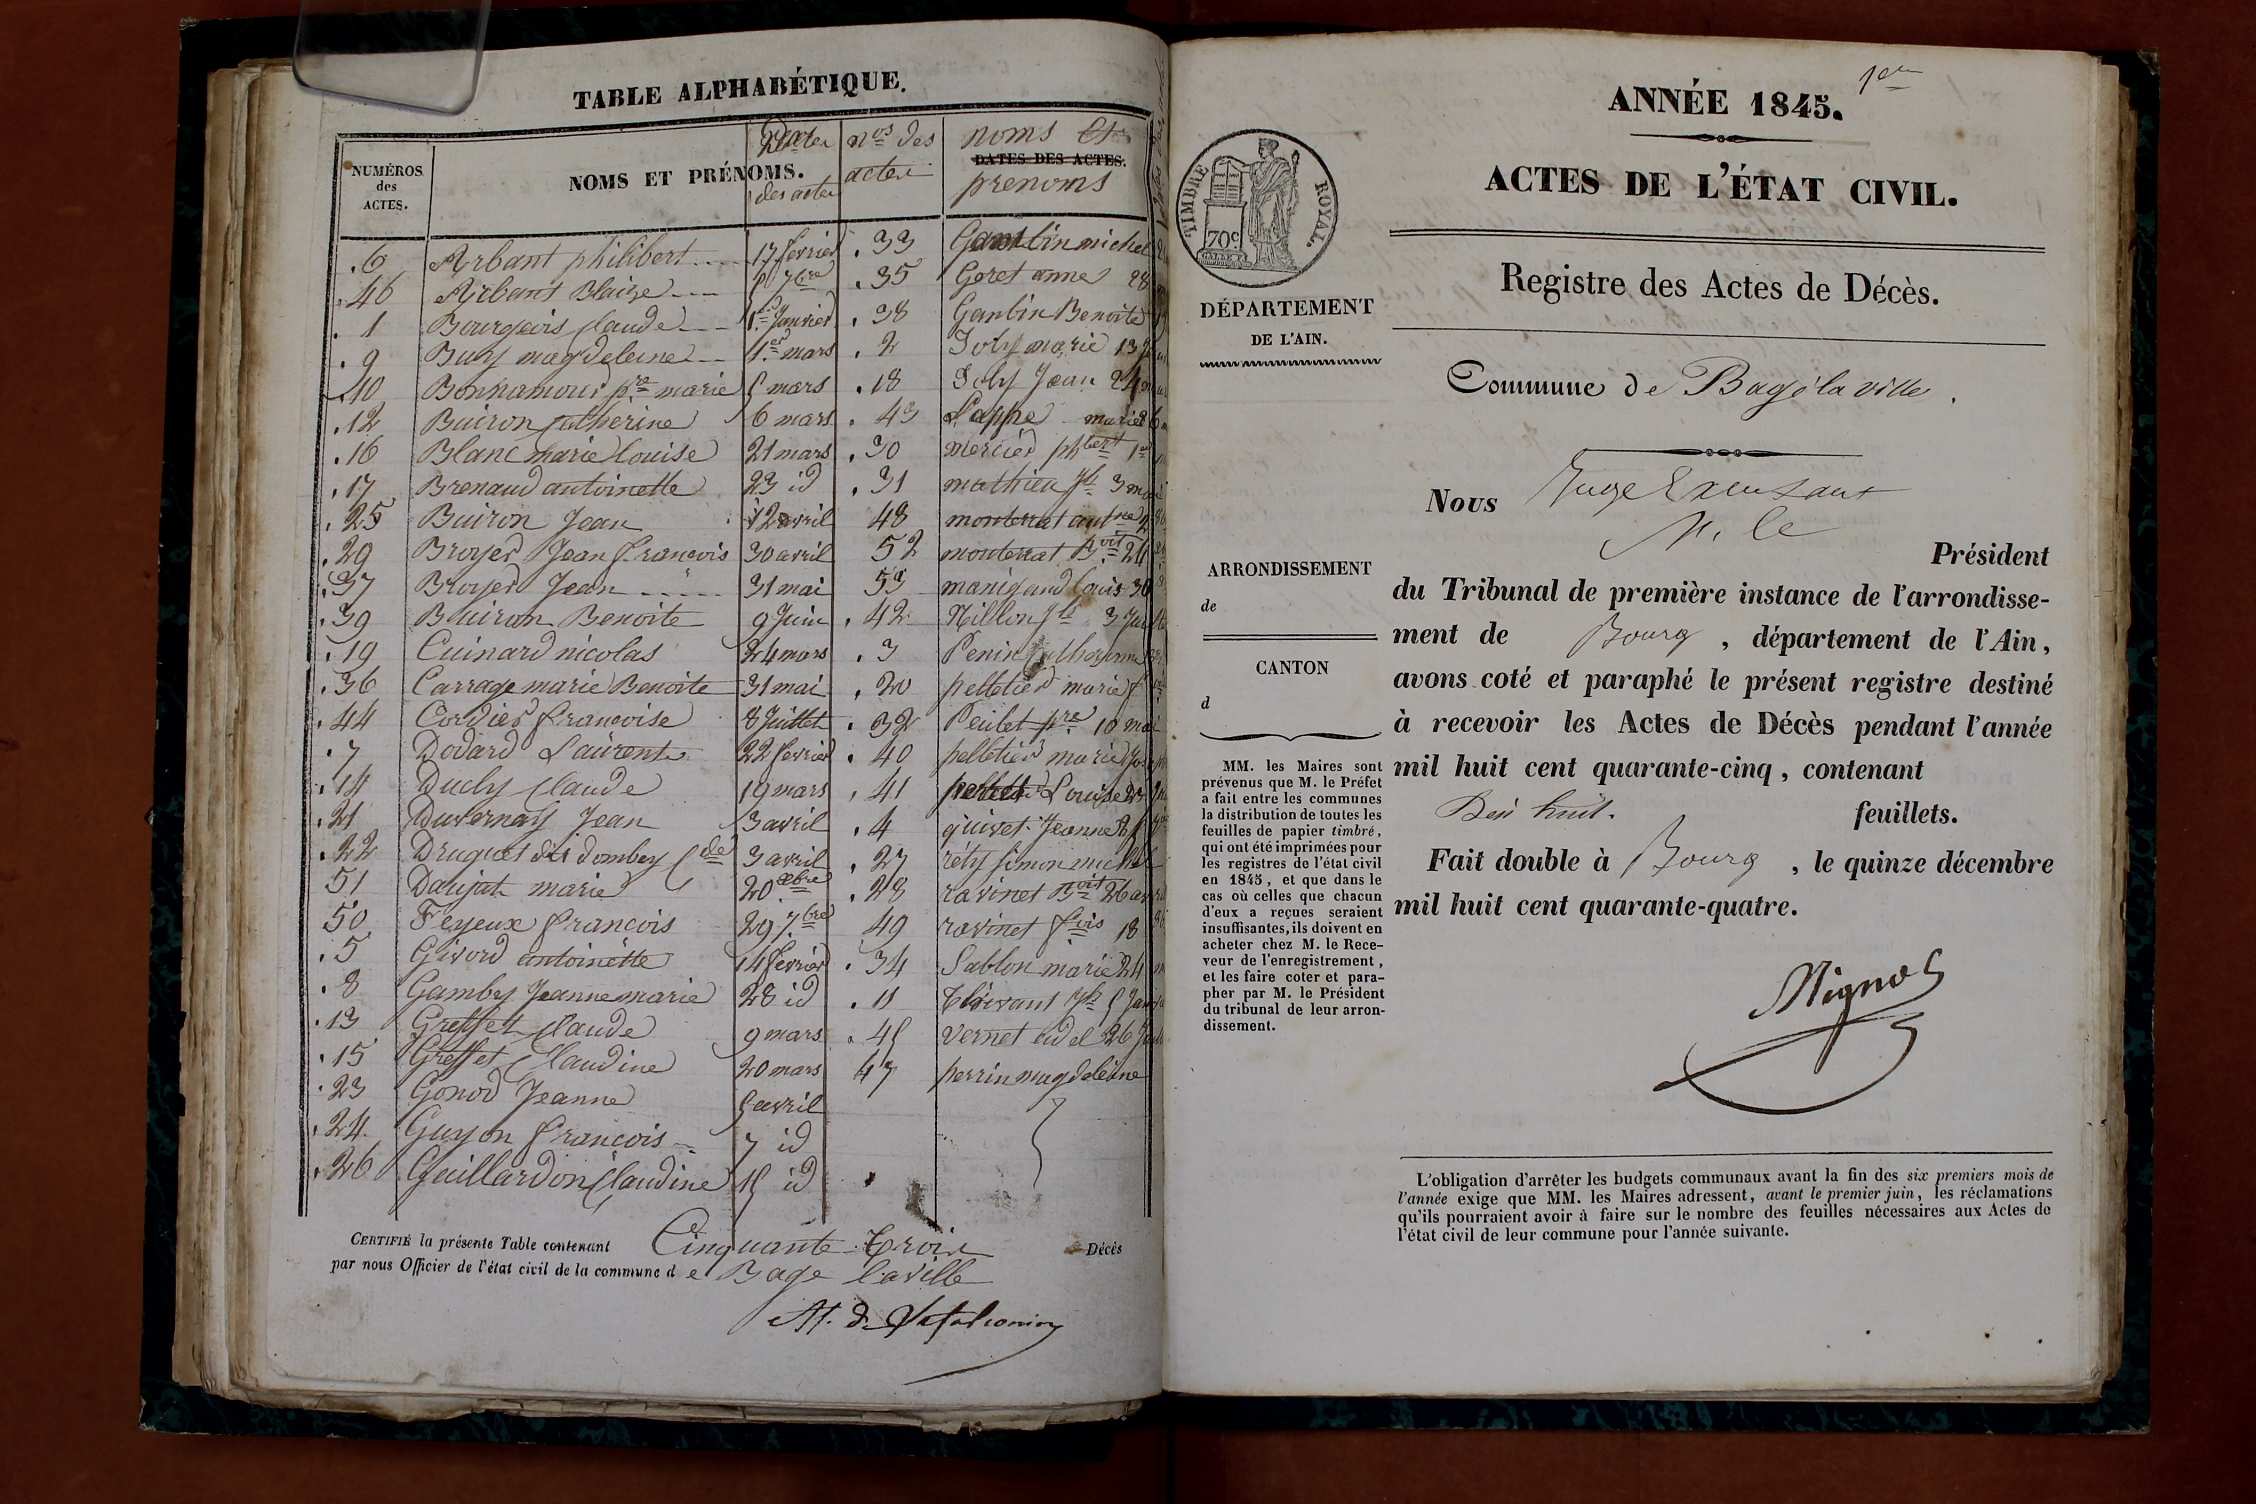 TABLE ALPHABÉTIQUE.
NUMÉROS des ACTES.
NOMS ET PRÉNOMS.
des actes
nos des actes
noms Et
DATES DES ACTES.
prenoms
.6 Arbant philibert 17 fevrier .33 Gambin michel
.46 Arbant Blaize 5 7bre .35 Goret anne 28
.1 Bourgeois Claude 1er Janvier .38 Gambin Benoite
.9 Buy magdeleine 1er mars .2 Joly marie 13
.10 Bonnamour pre marie 5 mars .18 Joly Jean 24
.12 Buiron Catherine 6 mars .43 Lappe marie
.16 Blanc marie Louise 21 mars .30 mercier phbert 1er
.17 Brenaud antoinette 23 id .31 mathieu Jh 3 mai
.25 Buiron Jean 12 avril 48 monterrat
.29 Broyer Jean francois 30 avril 52 monterrat Boit
.37 Broyer Jean 31 mai 53 manigand Louis 30
.39 Buiron Benoite 9 Juin .42 Nillon Jh 3
.19 Cuinard nicolas 24 mars .3 Penin
.36 Carrage marie Benoite 31 mai .20 pelletier marie
.44 Cordier francoise 8 Juillet .32 Peulet pre 10 mai
.7 Dodard Laurent 22 fevrier .40 pelletier marie
.14 Ducly Claude 19 mars .41 Louise
.21 Duvernay Jean 3 avril .4 quivet Jeanne
.22 Druguet dit dombey Cde 3 avril .27 réty simon michel
51 Daujat marie 20 .28 ravinet Boit 26
50 Feyeux francois 29 7bre 49 ravinet fois 18
.5 Givord antoinette 14 fevrier .34 Sablon marie 24
.8 Gamby Jeanne marie 28 id .11
.13 Greffet Claude 9 mars .45 Vernet 26
.15 Greffet Claudine 20 mars 47 perrin magdeleine
.23 Gonod Jeanne 5 avril
.24 Guyon francois 7 id
.26 Guillardon Claudine 15 id
CERTIFIÉ la présente Table contenant Cinquante Trois Décès
par nous Officier de l'état civil de la commune de Bage Laville
1er
ANNÉE 1845.
ACTES DE L'ÉTAT CIVIL.
TIMBRE ROYAL.
70c
DÉPARTEMENT
DE L'AIN.
Registre des Actes de Décès.
Commune de Bagé la ville.
Nous Juge
Président
ARRONDISSEMENT
de
CANTON
d
du Tribunal de première instance de l'arrondisse-
ment de Bourg, département de l'Ain,
avons coté et paraphé le présent registre destiné
à recevoir les Actes de Décès pendant l'année
mil huit cent quarante-cinq, contenant
Dix huit. feuillets.
Fait double à Bourg, le quinze décembre
mil huit cent quarante-quatre.
MM. les Maires sont
prévenus que M. le Préfet
a fait entre les communes
la distribution de toutes les
feuilles de papier timbré,
qui ont été imprimées pour
les registres de l'état civil
en 1845, et que dans le
cas où celles que chacun
d'eux a reçues seraient
insuffisantes, ils doivent en
acheter chez M. le Rece-
veur de l'enregistrement,
et les faire coter et para-
pher par M. le Président
du tribunal de leur arron-
dissement.
L'obligation d'arrêter les budgets communaux avant la fin des six premiers mois de
l'année exige que MM. les Maires adressent, avant le premier juin, les réclamations
qu'ils pourraient avoir à faire sur le nombre des feuilles nécessaires aux Actes de
l'état civil de leur commune pour l'année suivante.